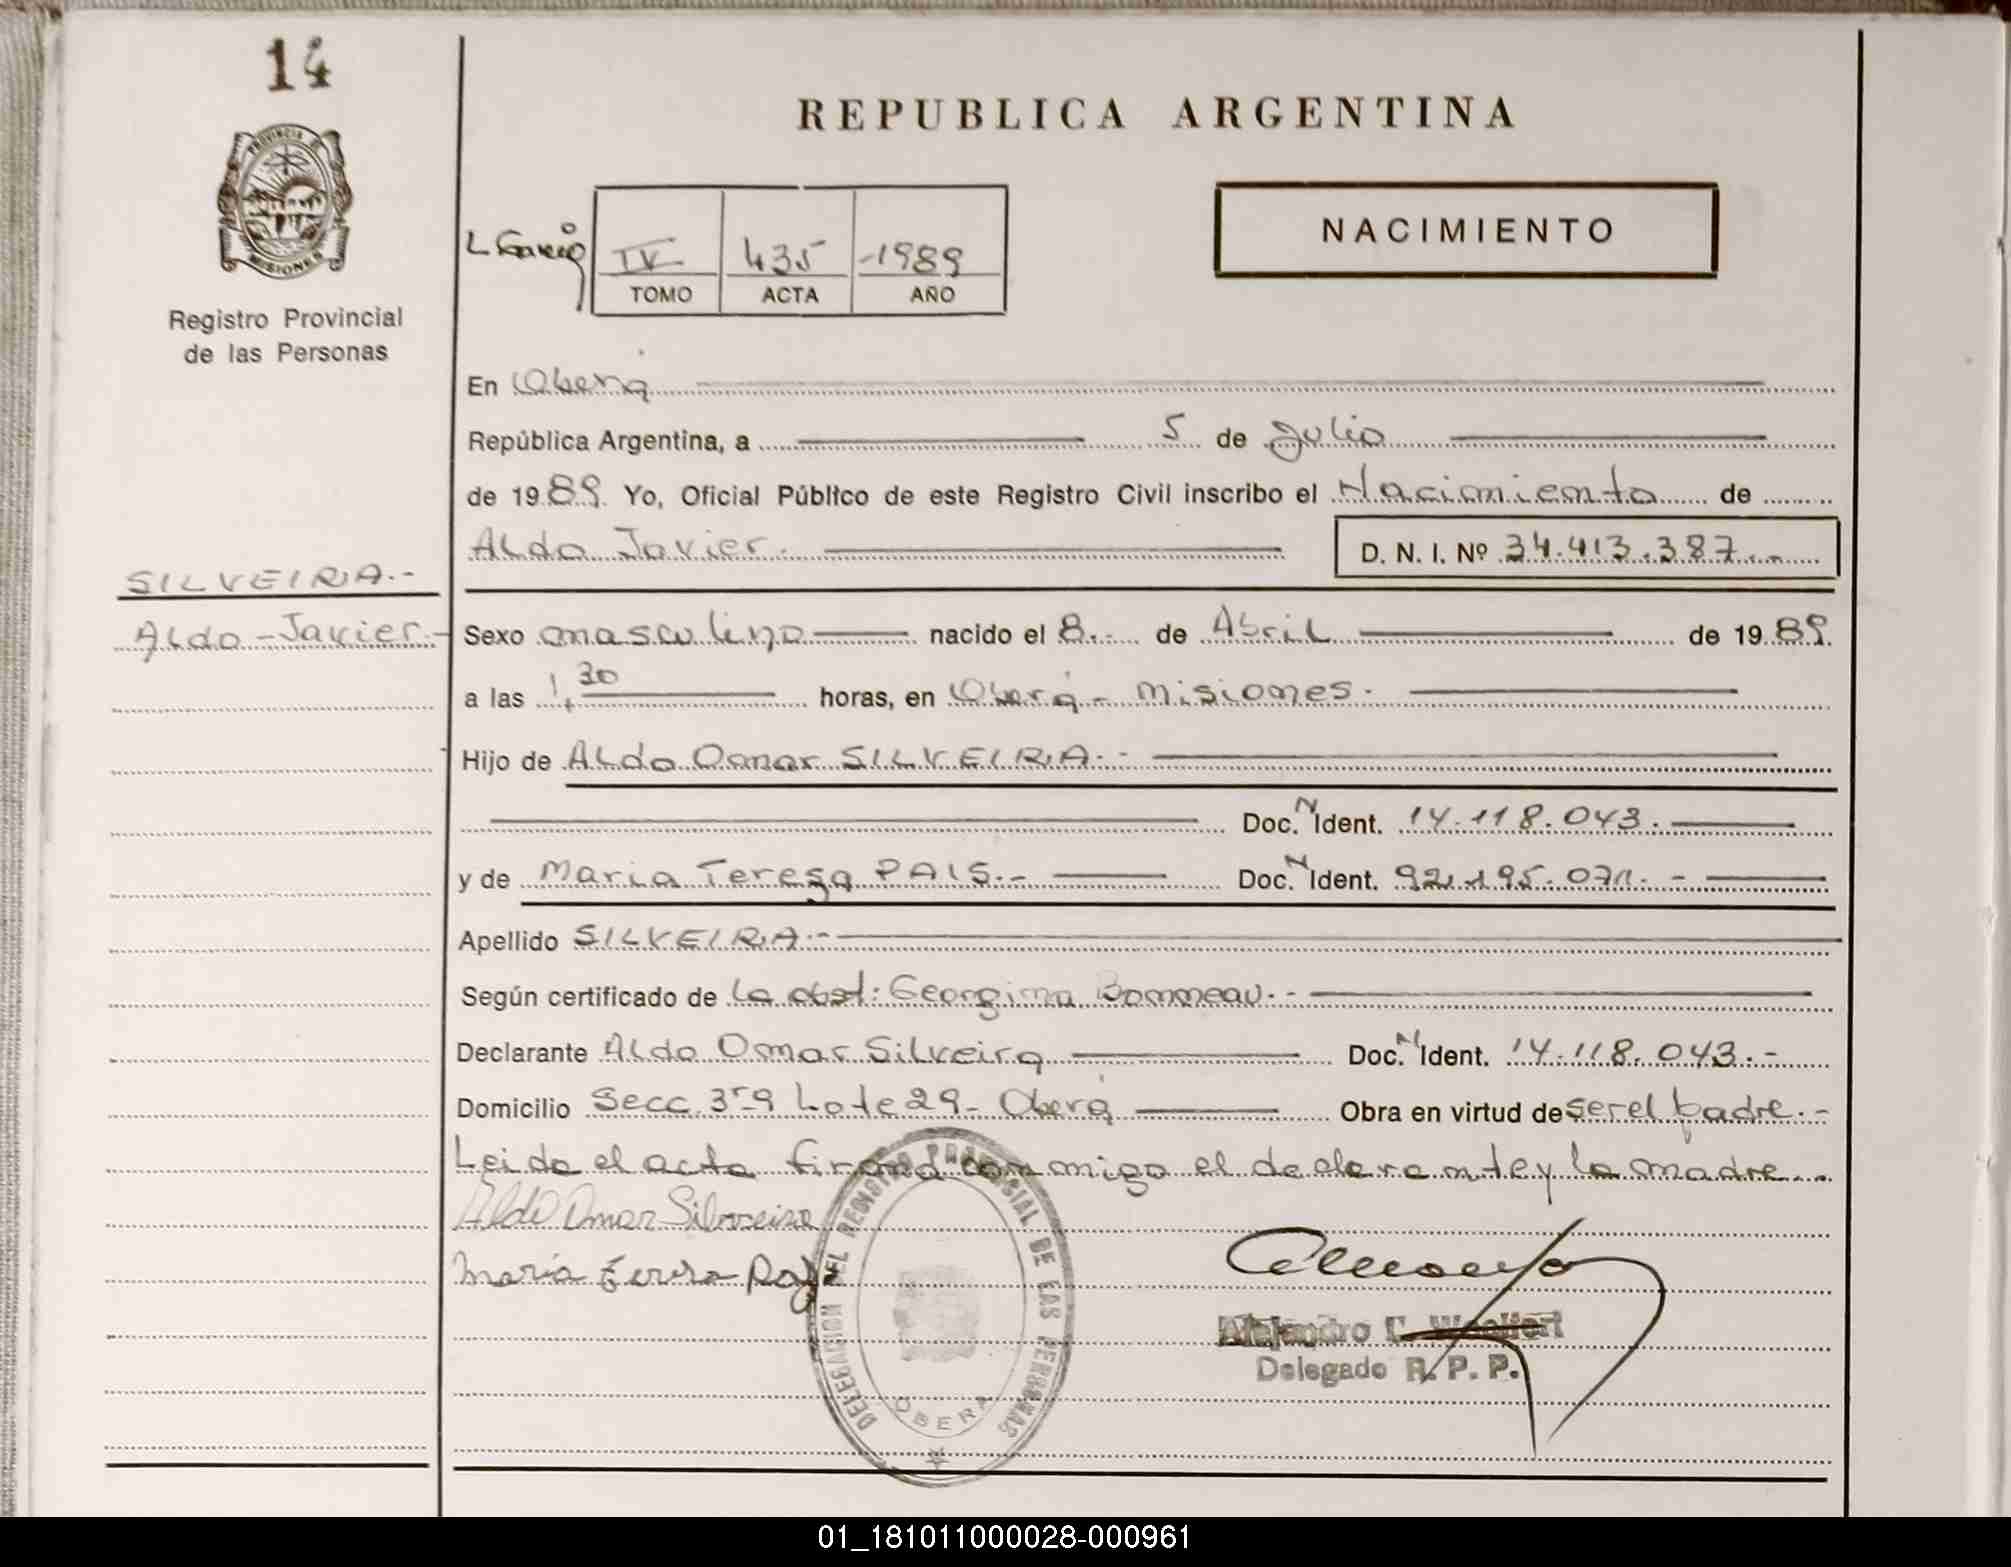 14
PROVINCIA DE
MISIONES
Registro Provincial
de las Personas
REPUBLICA ARGENTINA
NACIMIENTO
IV 435 -1989
TOMO ACTA AÑO
En Oberá
República Argentina, a 5 de Julio
de 1989. Yo, Oficial Público de este Registro Civil inscribo el Nacimiento de
Aldo Javier. D. N. I. Nº 34.413.387.-
SILVEIRA.-
Aldo - Javier.-
Sexo masculino nacido el 8.- de Abril de 1989.
a las 1,30 horas, en Oberá - Misiones.
Hijo de Aldo Omar SILVEIRA.-
Doc. N Ident. 14.118.043.
y de Maria Teresa PAIS.- Doc. N Ident. 92.195.071.-
Apellido SILVEIRA.-
Según certificado de la obst: Georgina Bonneau.-
Declarante Aldo Omar Silveira Doc. N Ident. 14.118.043.-
Domicilio Secc. 3ra Lote 29- Oberá Obra en virtud de ser el padre.-
Leida el acta firmand conmigo el declarante y la madre.-
Aldo Omar Silveira
María Teresa Pais
DELEGACION DEL REGISTRO PROVINCIAL DE LAS PERSONAS
OBERA
Alejandro
Delegado R. P. P.
01_181011000028-000961